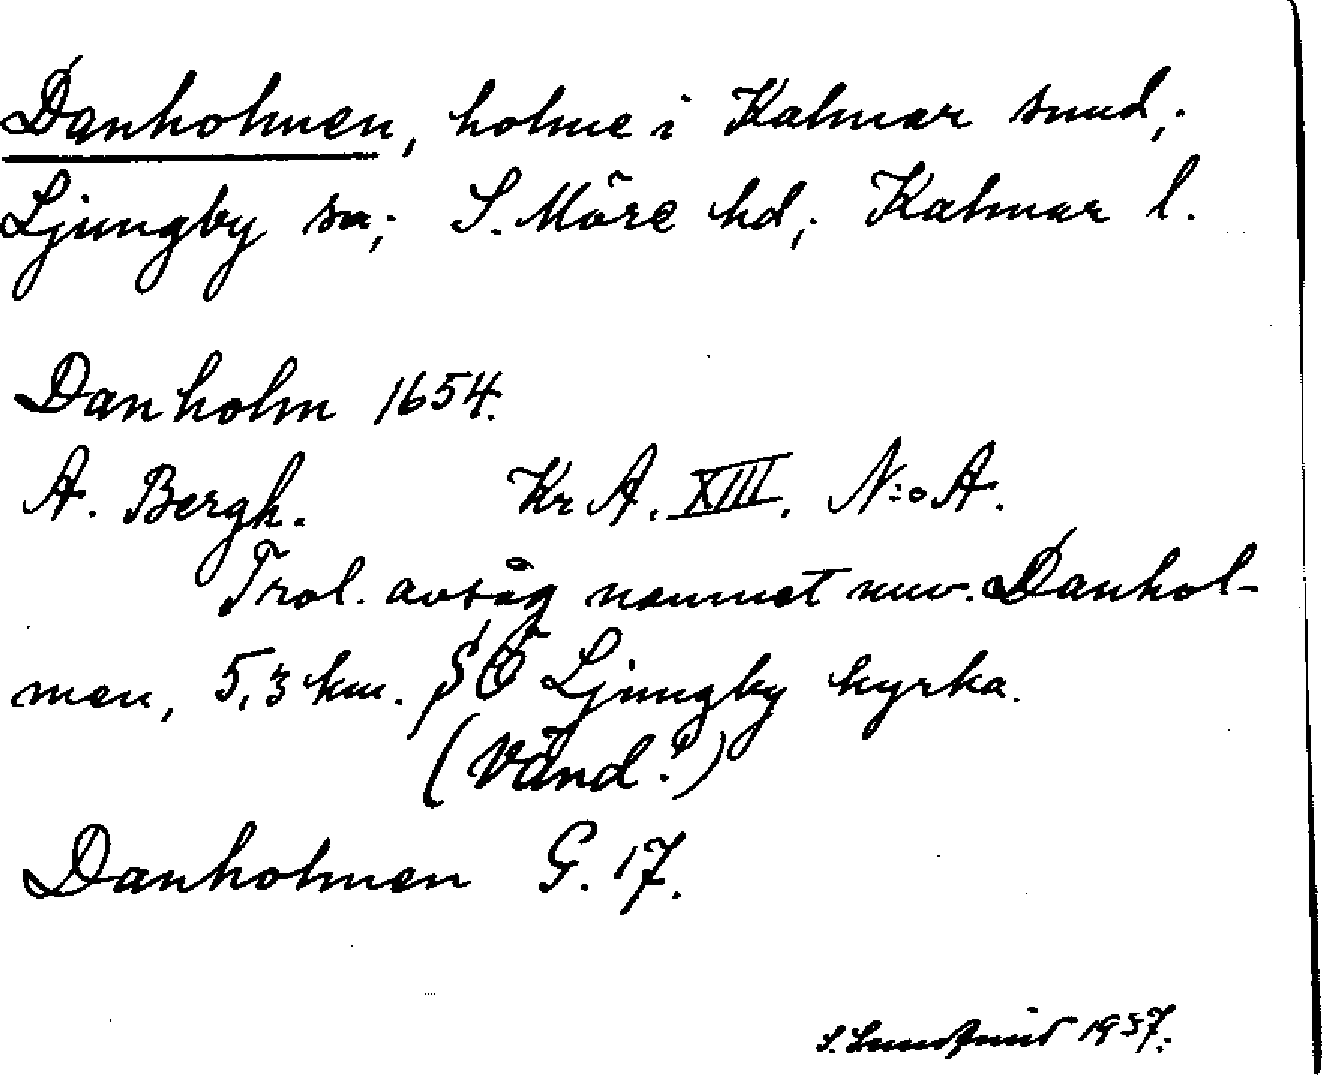 Danholmen, holme i Kalmar sund,.
Ljungby sn; S. Möre hd; Kalmar l.
Danholm 1654.
A. Bergh. Kr A. XIII. N:o A.
Trol. avsåg namnet nuv. Danhol-
men, 5,3 km. SÖ Ljungby kyrka.
(Vänd!)
Danholmen G. 17.
S. 1937.